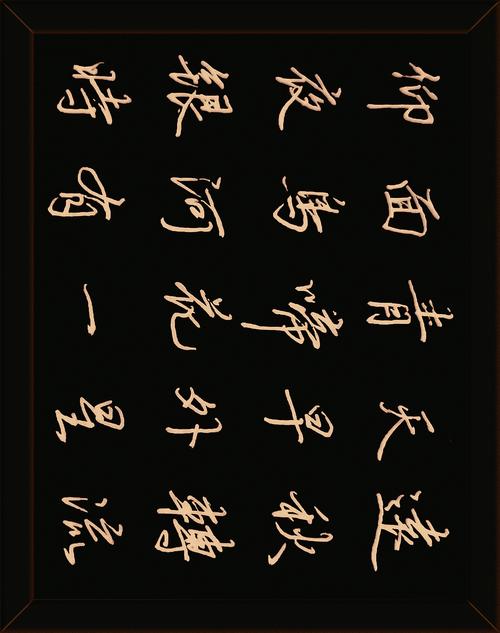 仰面青天遠
夜啼早秋
銀河花外轉
時有一星流